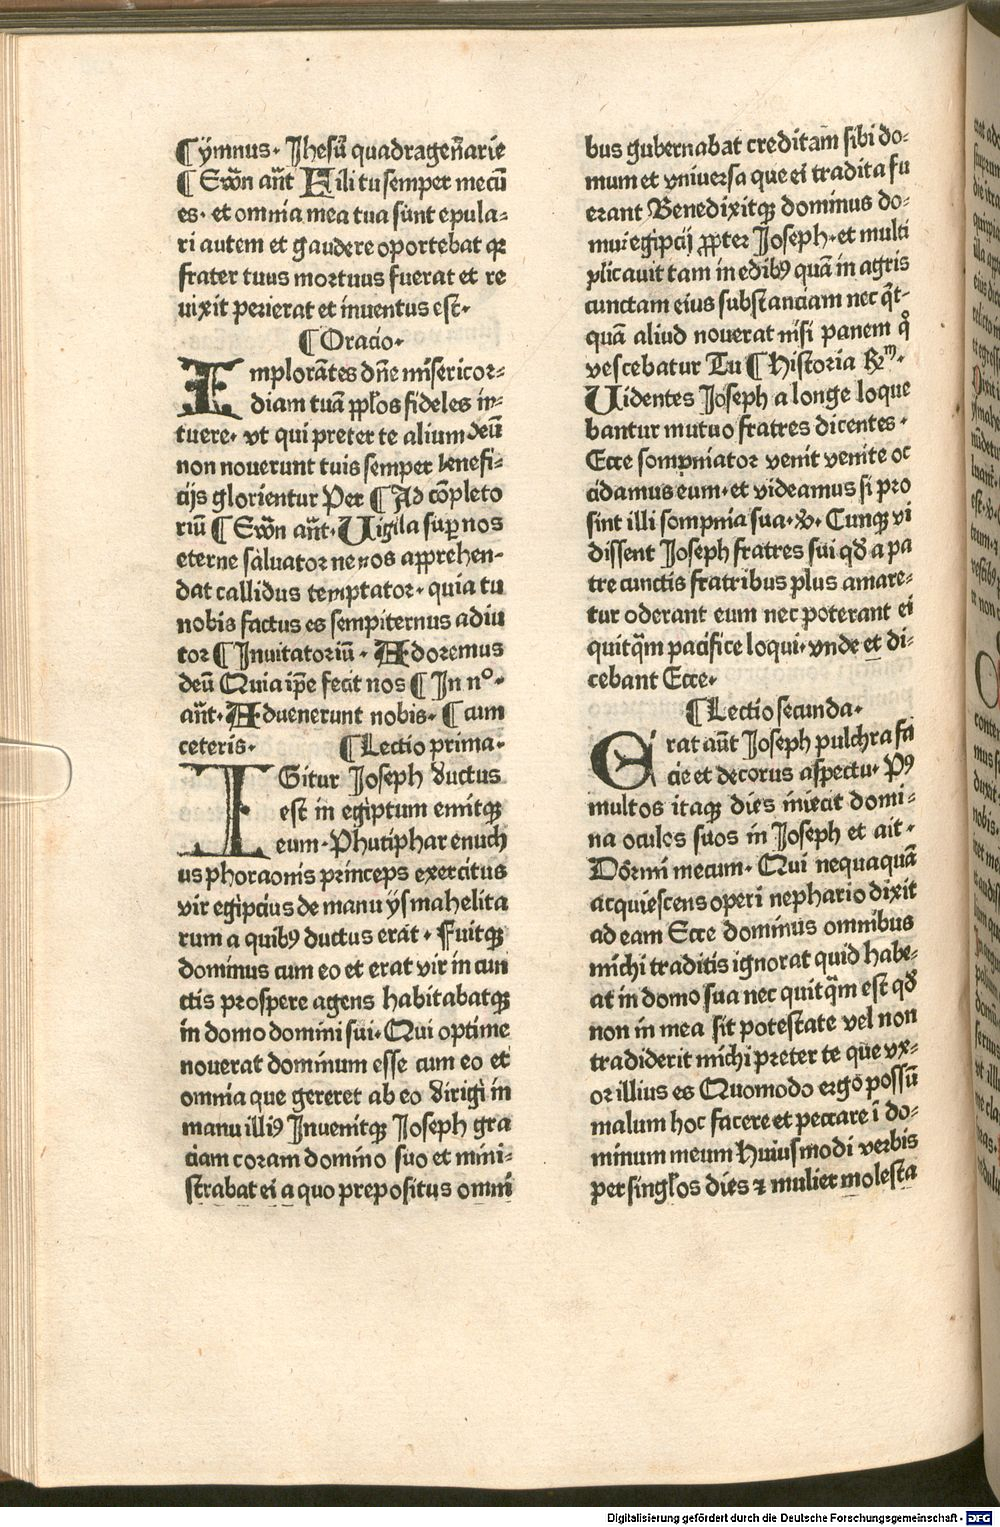 ¶ ymnus· Jhesū quadrageñarie
¶ Sɯ̄n an̄t Fili tu semper mecū
es· et omnia mea tua sunt epula⸗
ri autem et gaudere oportebat qꝛ
frater tuus mortuus fuerat et re
uixit perierat et inuentus est·
¶ Oracio·
Implorātes dn̄e misericor⸗
diam tuā ꝓpłos fideles in⸗
tuere· vt qui preter te alium deū
non nouerunt tuis semper benefi⸗
cijs glorientur Per ¶ Ad cōpleto
riū ¶ Sɯ̄n an̄t· Uigila suꝑ nos
eterne saluator ne nos apprehen⸗
dat callidus temptator· quia tu
nobis factus es sempiternus adiu
tor ¶ Inuitatoriū· Adoremus
deū Quia ip̄e fecit nos ¶ In nº·
an̄t· Aduenerunt nobis· ¶ cum
ceteris· ¶ Lectio prima·
IGitur Joseph ductus
est in egiptum emitqꝫ
eum· Phutiphar enuch
us phoraonis princeps exercitus
vir egipcius de manu ysmahelita
rum a quibꝰ ductus erat· Fuitqꝫ
dominus cum eo et erat vir in cun
ctis prospere agens habitabatqꝫ
in domo domini sui· Qui optime
nouerat dominum esse cum eo et
omnia que gereret ab eo dirigi in
manu illiꝰ Inuenitqꝫ Joseph gra
ciam coram domino suo et mini⸗
strabat ei a quo prepositus omni
bus gubernabat creditam sibi do⸗
mum et vniuersa que ei tradita fu
erant Benedixitqꝫ dominus do⸗
mui egipcij ꝓpter Joseph· et multi
plicauit tam in edibꝰ quā in agris
cunctam eius substanciam nec q̄t⸗
quā aliud nouerat nisi panem q̊
vescebatur Tu ¶ Historia ℞ᵐ·
Uidentes Joseph a longe loque
bantur mutuo fratres dicentes·
Ecce sompniator venit venite oc
cidamus eum· et videamus si pro
sint illi sompnia sua· ℣· Cunqꝫ vi
dissent Joseph fratres sui qď a pa
tre cunctis fratribus plus amare⸗
tur oderant eum nec poterant ei
quitq̄m pacifice loqui· vnde et di⸗
cebant Ecce·
¶ Lectio secunda·
Erat aūt Joseph pulchra fa
cie et decorus aspectu· Pꝰ
multos itaqꝫ dies iniecit domi⸗
na oculos suos in Joseph et ait·
Dormi mecum· Qui nequaquā
acquiescens operi nephario dixit
ad eam Ecce dominus omnibus
michi traditis ignorat quid habe⸗
at in domo sua nec quitq̄m est qď
non in mea sit potestate vel non
tradiderit michi preter te que vx⸗
or illius es Quomodo ergo possū
malum hoc facere et peccare ī do⸗
minum meum Huiusmodi verbis
per singłos dies ⁊ mulier molesta
Digitalisierung gefördert durch die Deutsche Forschungsgemeinschaft - DFG